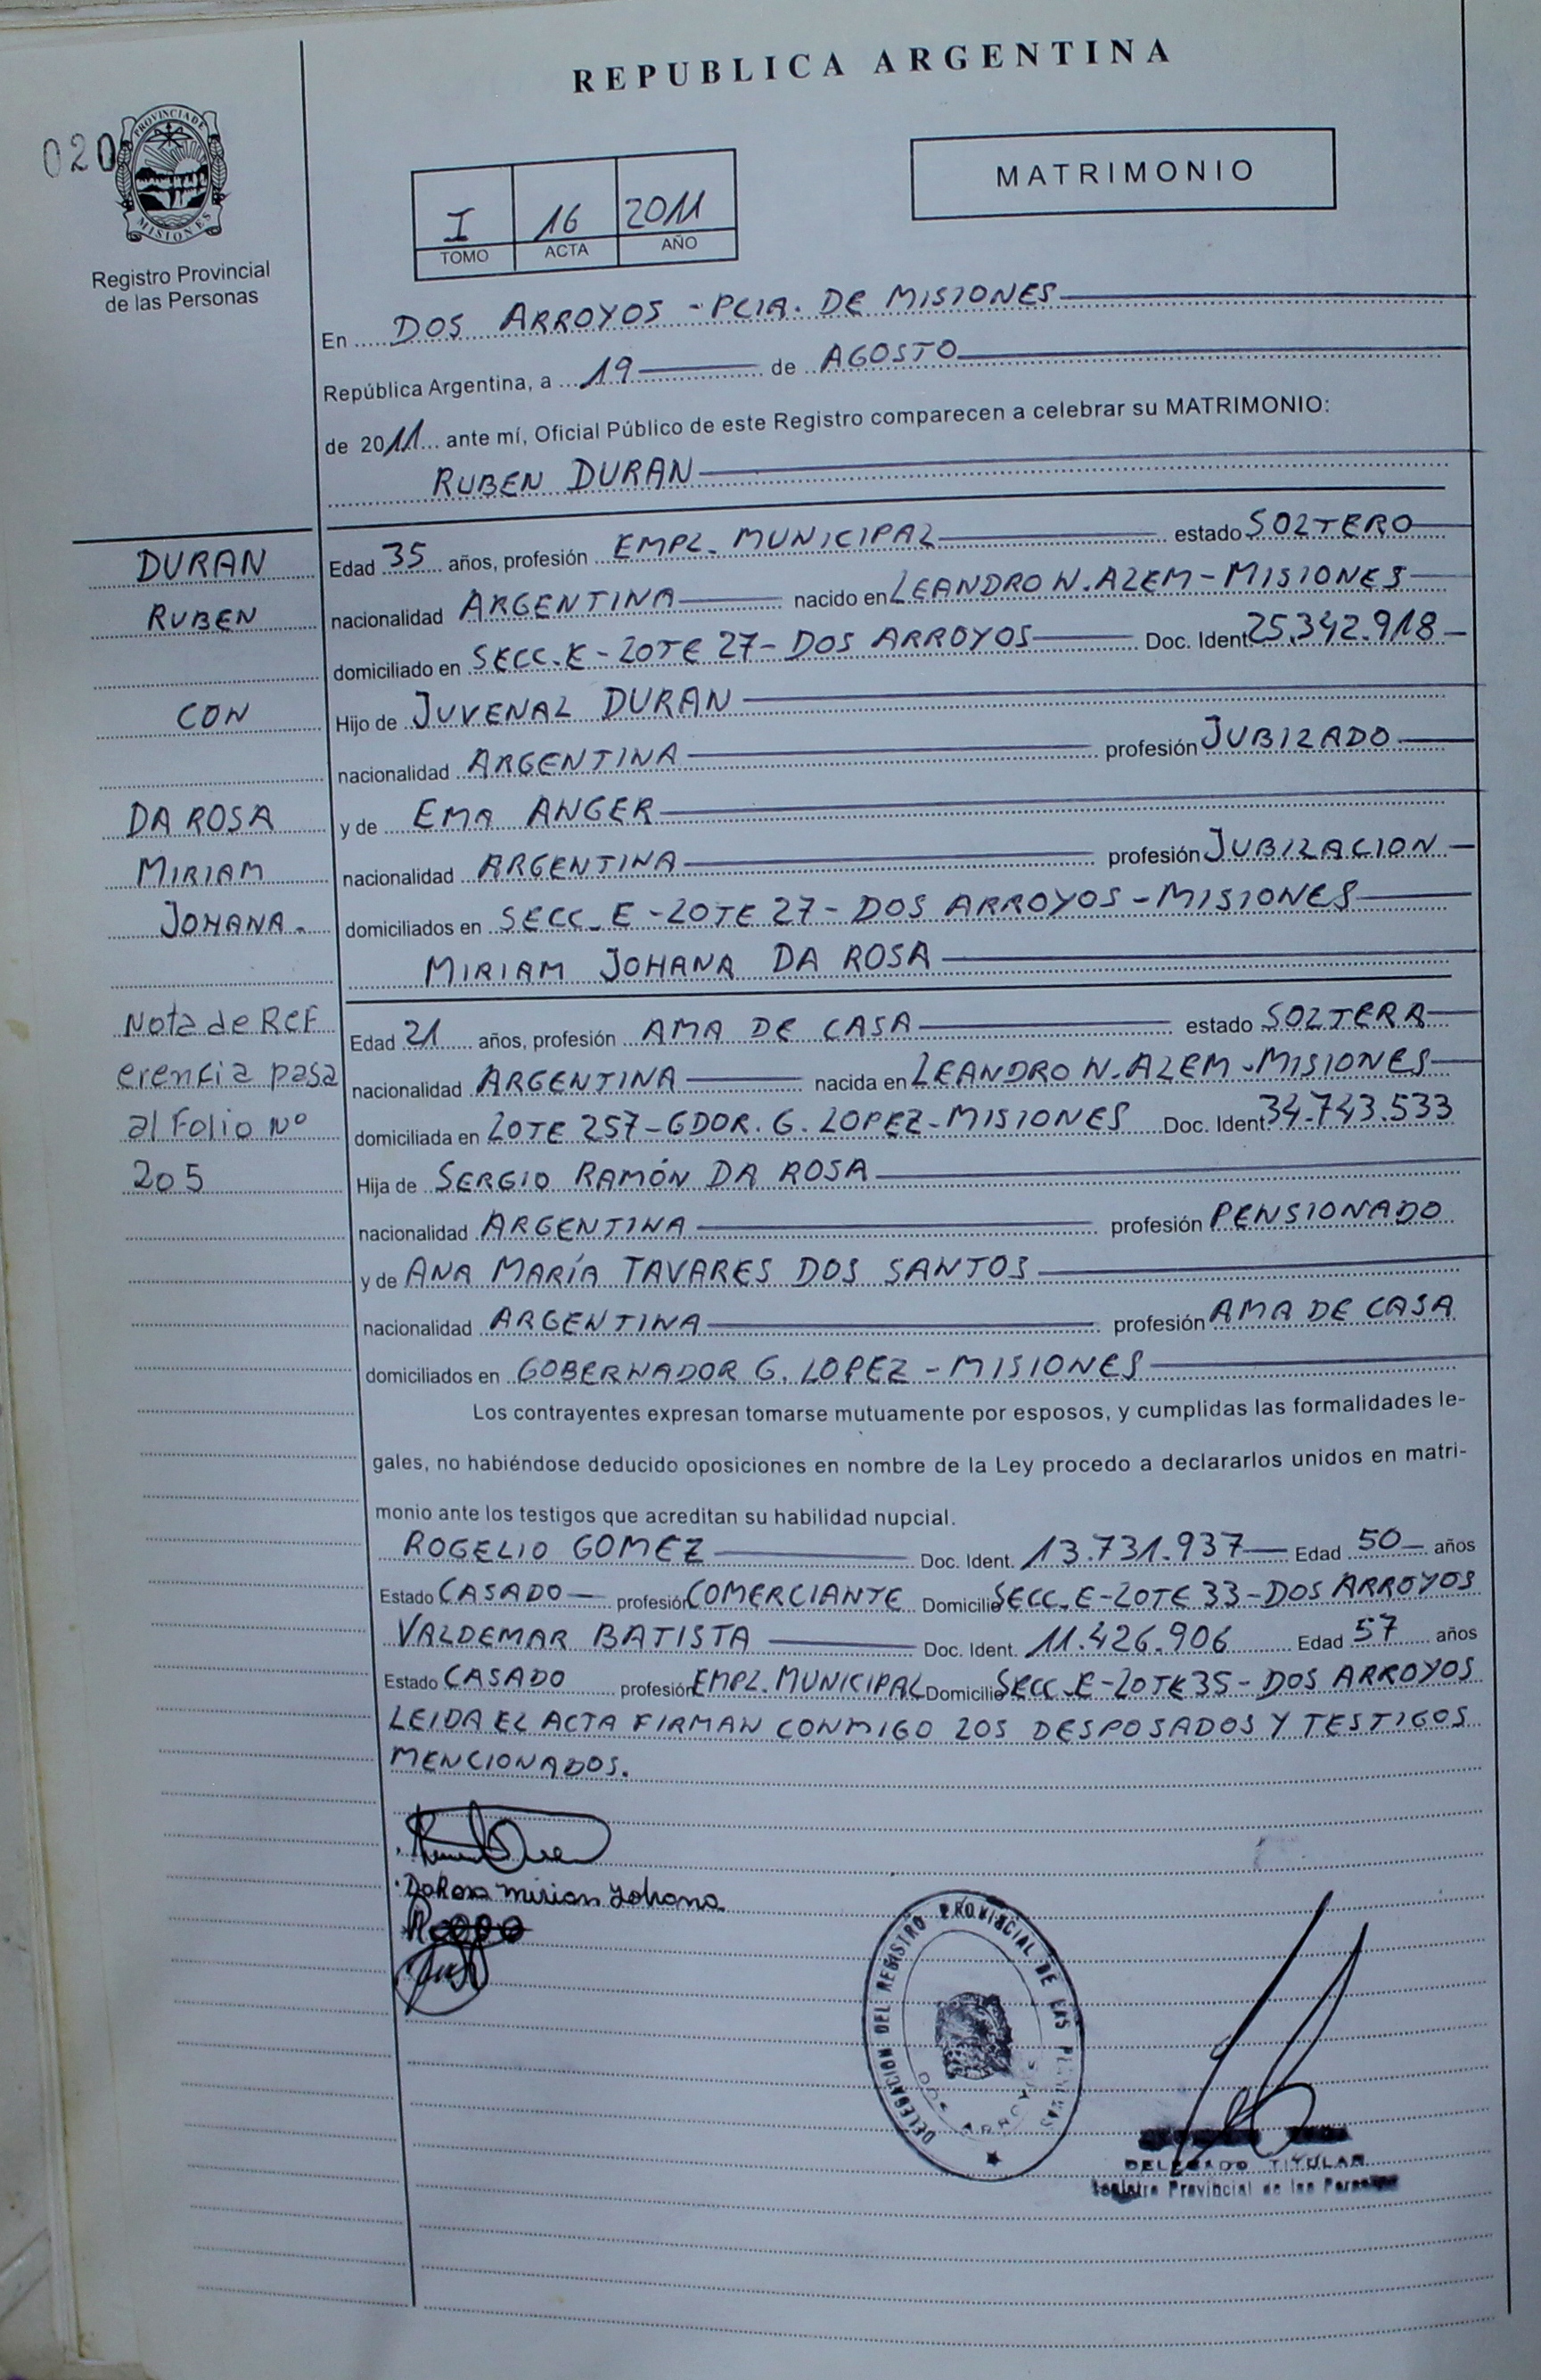 REPUBLICA ARGENTINA
020
PROVINCIA DE
MISIONES
Registro Provincial
de las Personas
I 16 2011
TOMO ACTA AÑO
MATRIMONIO
En DOS ARROYOS - PCIA. DE MISIONES
República Argentina, a 19 de AGOSTO
de 2011 ante mí, Oficial Público de este Registro comparecen a celebrar su MATRIMONIO:
RUBEN DURAN
DURAN
RUBEN
CON
DA ROSA
MIRIAM
JOHANA.
Nota de Ref
erencia pasa
al Folio Nº
205
Edad 35 años, profesión EMPL. MUNICIPAL estado SOLTERO
nacionalidad ARGENTINA nacido en LEANDRO N. ALEM - MISIONES
domiciliado en SECC. E - LOTE 27 - DOS ARROYOS Doc. Ident. 25.342.918
Hijo de JUVENAL DURAN
nacionalidad ARGENTINA profesión JUBILADO
y de EMA ANGER
nacionalidad ARGENTINA profesión JUBILACION
domiciliados en SECC. E - LOTE 27 - DOS ARROYOS - MISIONES
MIRIAM JOHANA DA ROSA
Edad 21 años, profesión AMA DE CASA estado SOLTERA
nacionalidad ARGENTINA nacida en LEANDRO N. ALEM - MISIONES
domiciliada en LOTE 257 - GDOR. G. LOPEZ - MISIONES Doc. Ident. 34.743.533
Hija de SERGIO RAMÓN DA ROSA
nacionalidad ARGENTINA profesión PENSIONADO
y de ANA MARÍA TAVARES DOS SANTOS
nacionalidad ARGENTINA profesión AMA DE CASA
domiciliados en GOBERNADOR G. LOPEZ - MISIONES
Los contrayentes expresan tomarse mutuamente por esposos, y cumplidas las formalidades le-
gales, no habiéndose deducido oposiciones en nombre de la Ley procedo a declararlos unidos en matri-
monio ante los testigos que acreditan su habilidad nupcial.
ROGELIO GOMEZ Doc. Ident. 13.731.937 Edad 50 años
Estado CASADO profesión COMERCIANTE Domicilio SECC. E - LOTE 33 - DOS ARROYOS
VALDEMAR BATISTA Doc. Ident. 11.426.906 Edad 57 años
Estado CASADO profesión EMPL. MUNICIPAL Domicilio SECC. E - LOTE 35 - DOS ARROYOS
LEIDA EL ACTA FIRMAN CONMIGO LOS DESPOSADOS Y TESTIGOS
MENCIONADOS.
DaRosa Mirian Johana
DELEGACION DEL REGISTRO PROVINCIAL DE LAS PERSONAS
DOS ARROYOS
DELEGADO TITULAR
Registro Provincial de las Personas